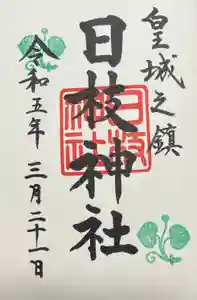 皇城之鎮
日枝神社
日枝神社
令和五年 三月二十一日